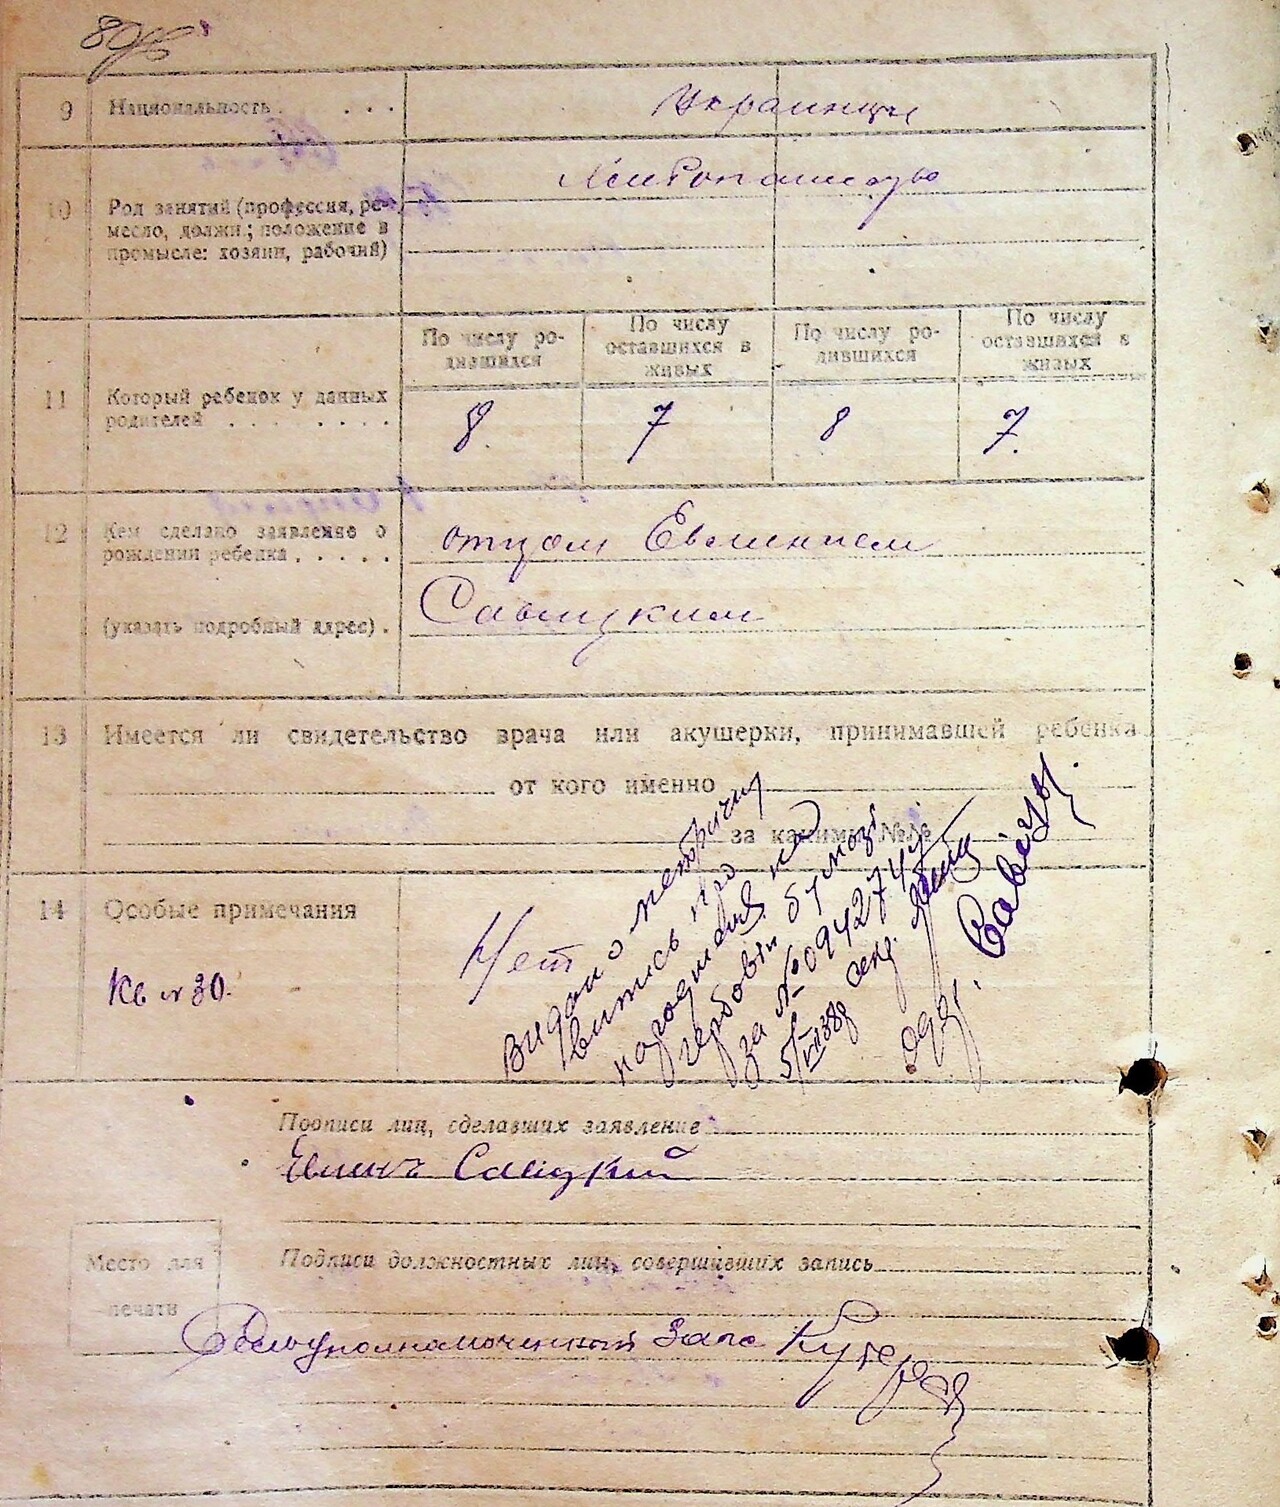 80
9 Национальность . . . . Украинцы
10 Род занятий (профессия, ре-
месло, должн.; положение в
промысле: хозяин, рабочий)
Хлебопашество
По числу ро-
дившихся
По числу
оставшихся в
живых
По числу ро-
дившихся
По числу
оставшихся в
живых
11 Который ребенок у данных
родителей . . . . . . .
8. 7 8 7.
12 Кем сделано заявление о
рождении ребенка . . . . .
отцом Евмением
(указать подробный адрес) .
Савицким
13 Имеется ли свидетельство врача или акушерки, принимавшей ребенка
от кого именно
за каким №№
14 Особые примечания
Кв № 30.
Нет
видано метричну
витись про
народження на
гербовім бумазі
за № 0942744
5/VII 38р
Подписи лиц, сделавших заявление
Савіцкий
Место для
печати
Подписи должностных лиц, совершивших запись
Делоуполномоченный Загс